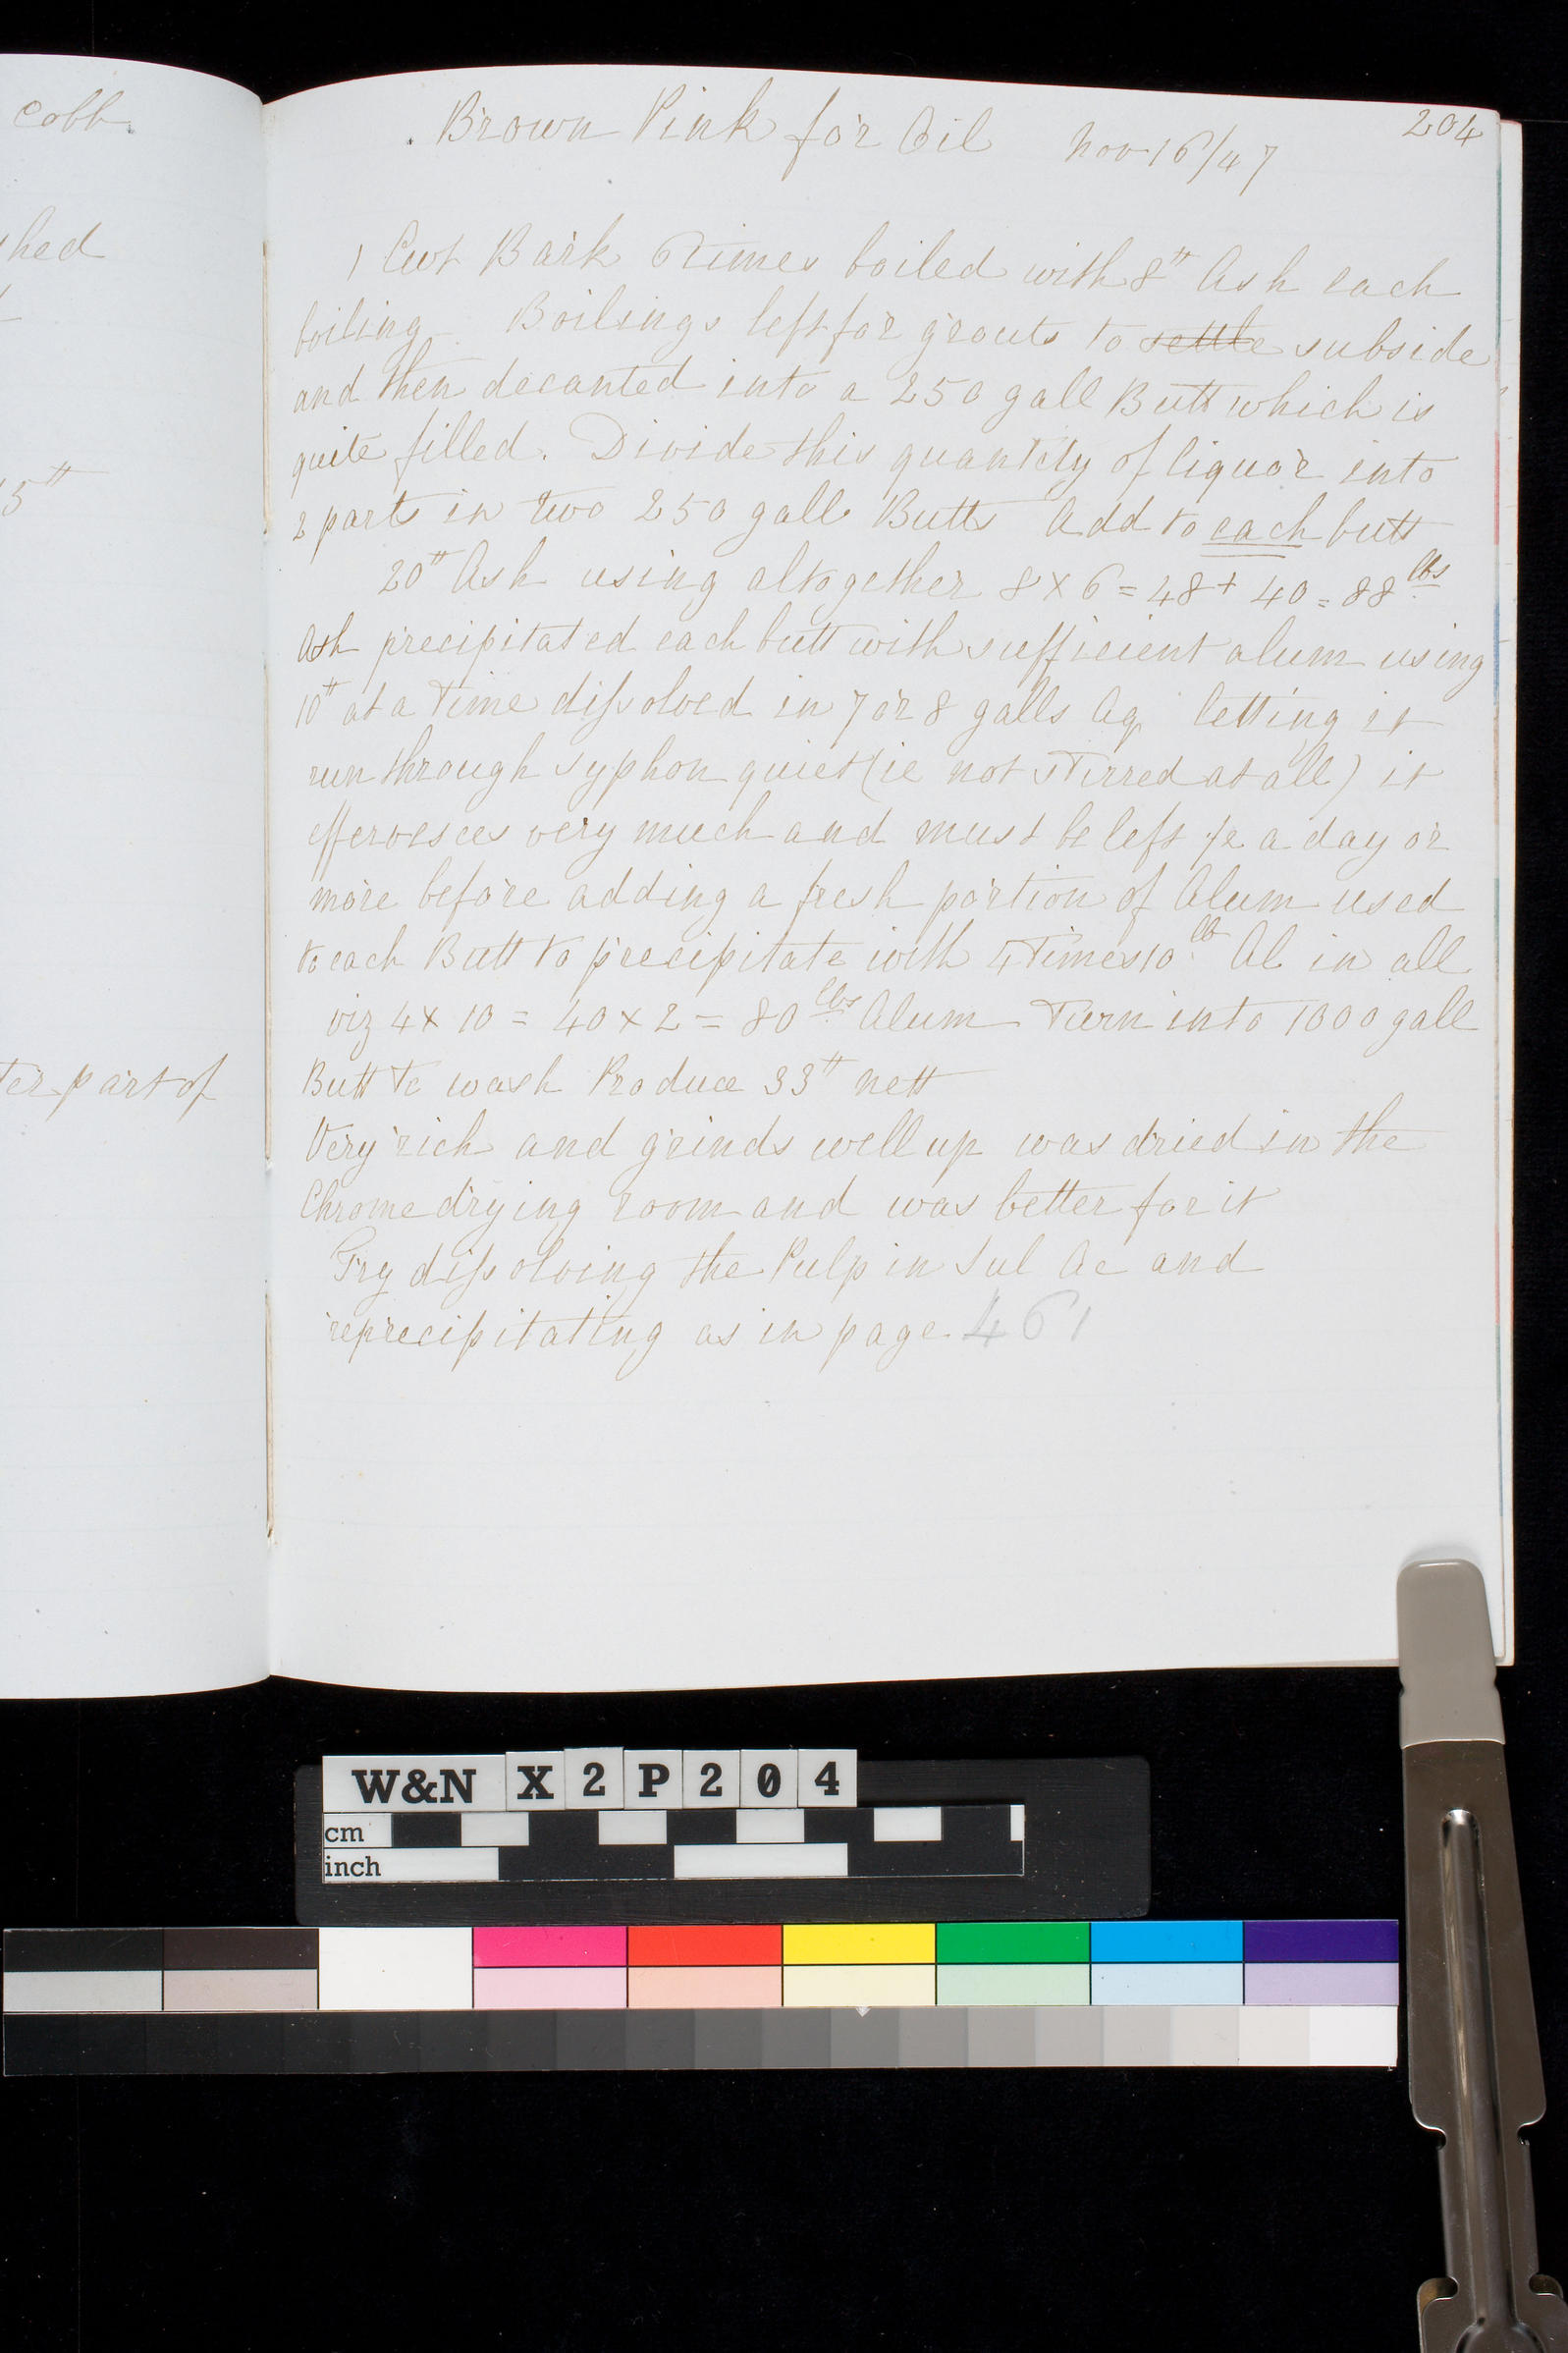 cobb.
hed
15"
ter part of
Brown Pink for Oil Nov 16/47
204
1 Cwt Bark 6 times boiled with 8" Ash each
boiling Boilings left for grouts to settle subside
and then decanted into a 250 gall Butt which is
quite filled. Divide this quantity of liquor into
2 parts in two 250 gall Butts Add to each butt
20" Ash using altogether 8 x 6 = 48 + 40 = 88 lbs
Ash precipitated each butt with sufficient alum using
10" at a time dissolved in 7 or 8 galls Aq letting it
run through syphon quiet (ie not stirred at all) it
effervesces very much and must be left a day or
more before adding a fresh portion of Alum used
to each Butt to precipitate with 4 times 10 lb Al in all
viz 4 x 10 = 40 x 2 = 80 lbs Alum Turn into 1000 gall
Butt to wash Produce 33" nett
Very rich and grinds well up was dried in the
Chrome drying room and was better for it
Try dissolving the Pulp in Sul Ac and
reprecipitating as in page 461
W&N X2P204
cm
inch